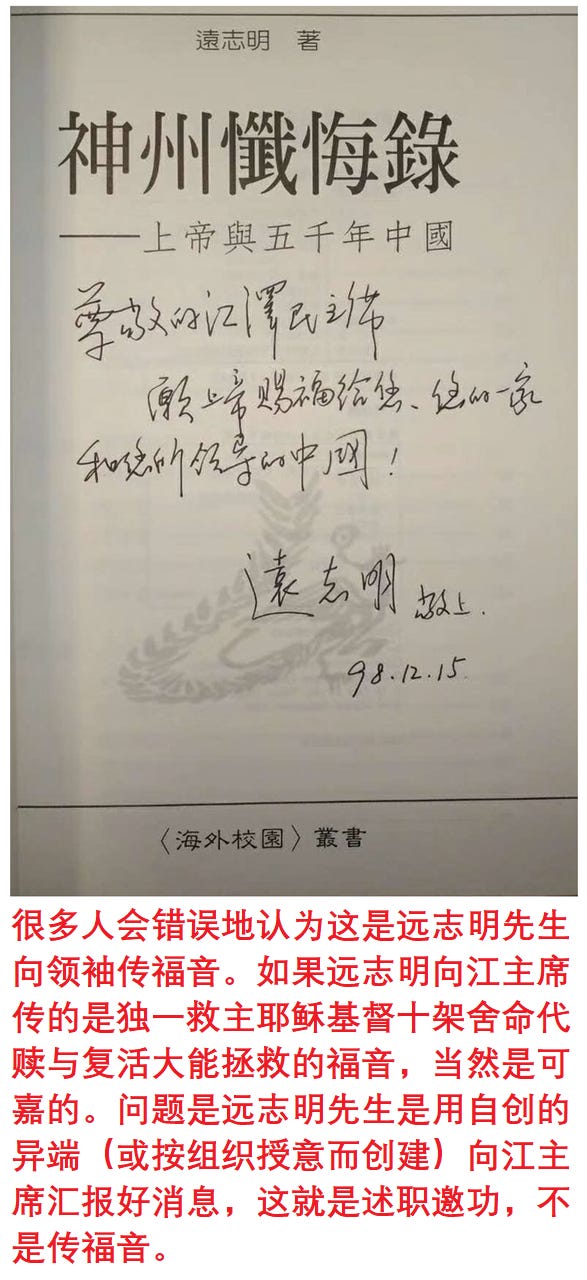 遠志明 著
神州懺悔錄
——上帝與五千年中國
尊敬的江澤民主席
願上帝赐福给您、您的一家
和您所领导的中國！
遠志明 敬上.
98.12.15.
〈海外校園〉叢書
很多人会错误地认为这是远志明先生
向领袖传福音。如果远志明向江主席
传的是独一救主耶稣基督十架舍命代
赎与复活大能拯救的福音，当然是可
嘉的。问题是远志明先生是用自创的
异端（或按组织授意而创建）向江主
席汇报好消息，这就是述职邀功，不
是传福音。